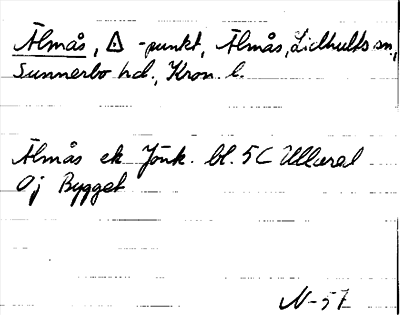 Älmås, △ -punkt, Älmås, Lidhults sn,
Sunnerbo hd., Kron. l.
Älmås ek Jönk. bl. 5C Ullared
0j Bygget
N-57